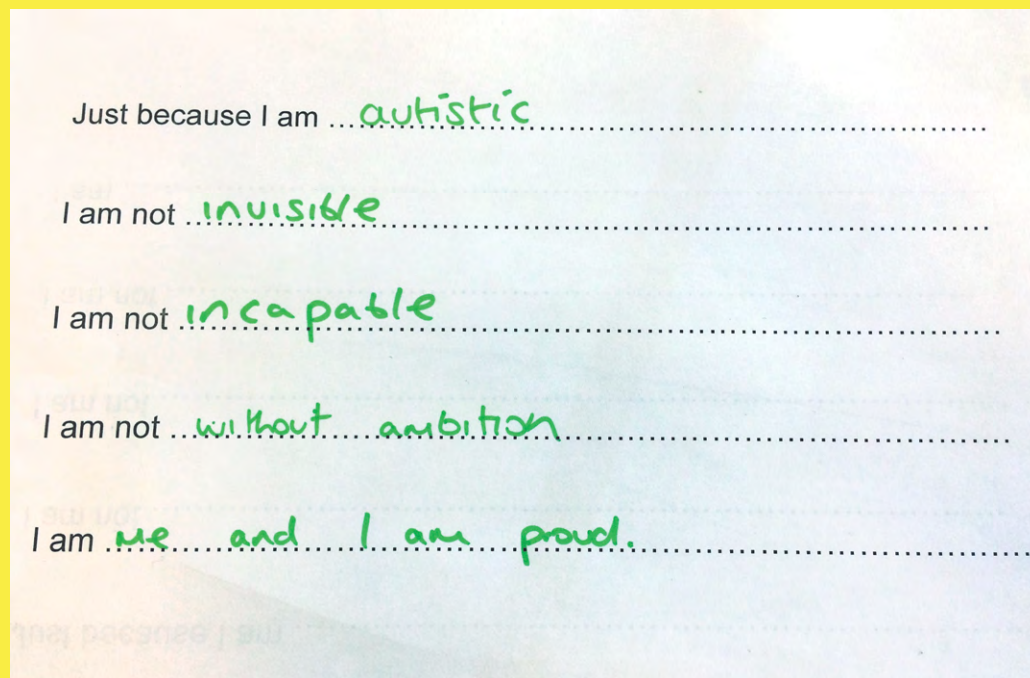 Just because I am ... autistic ...
I am not ... invisible ...
I am not ... incapable ...
I am not ... without ambition ...
I am ... me and I am proud. ...